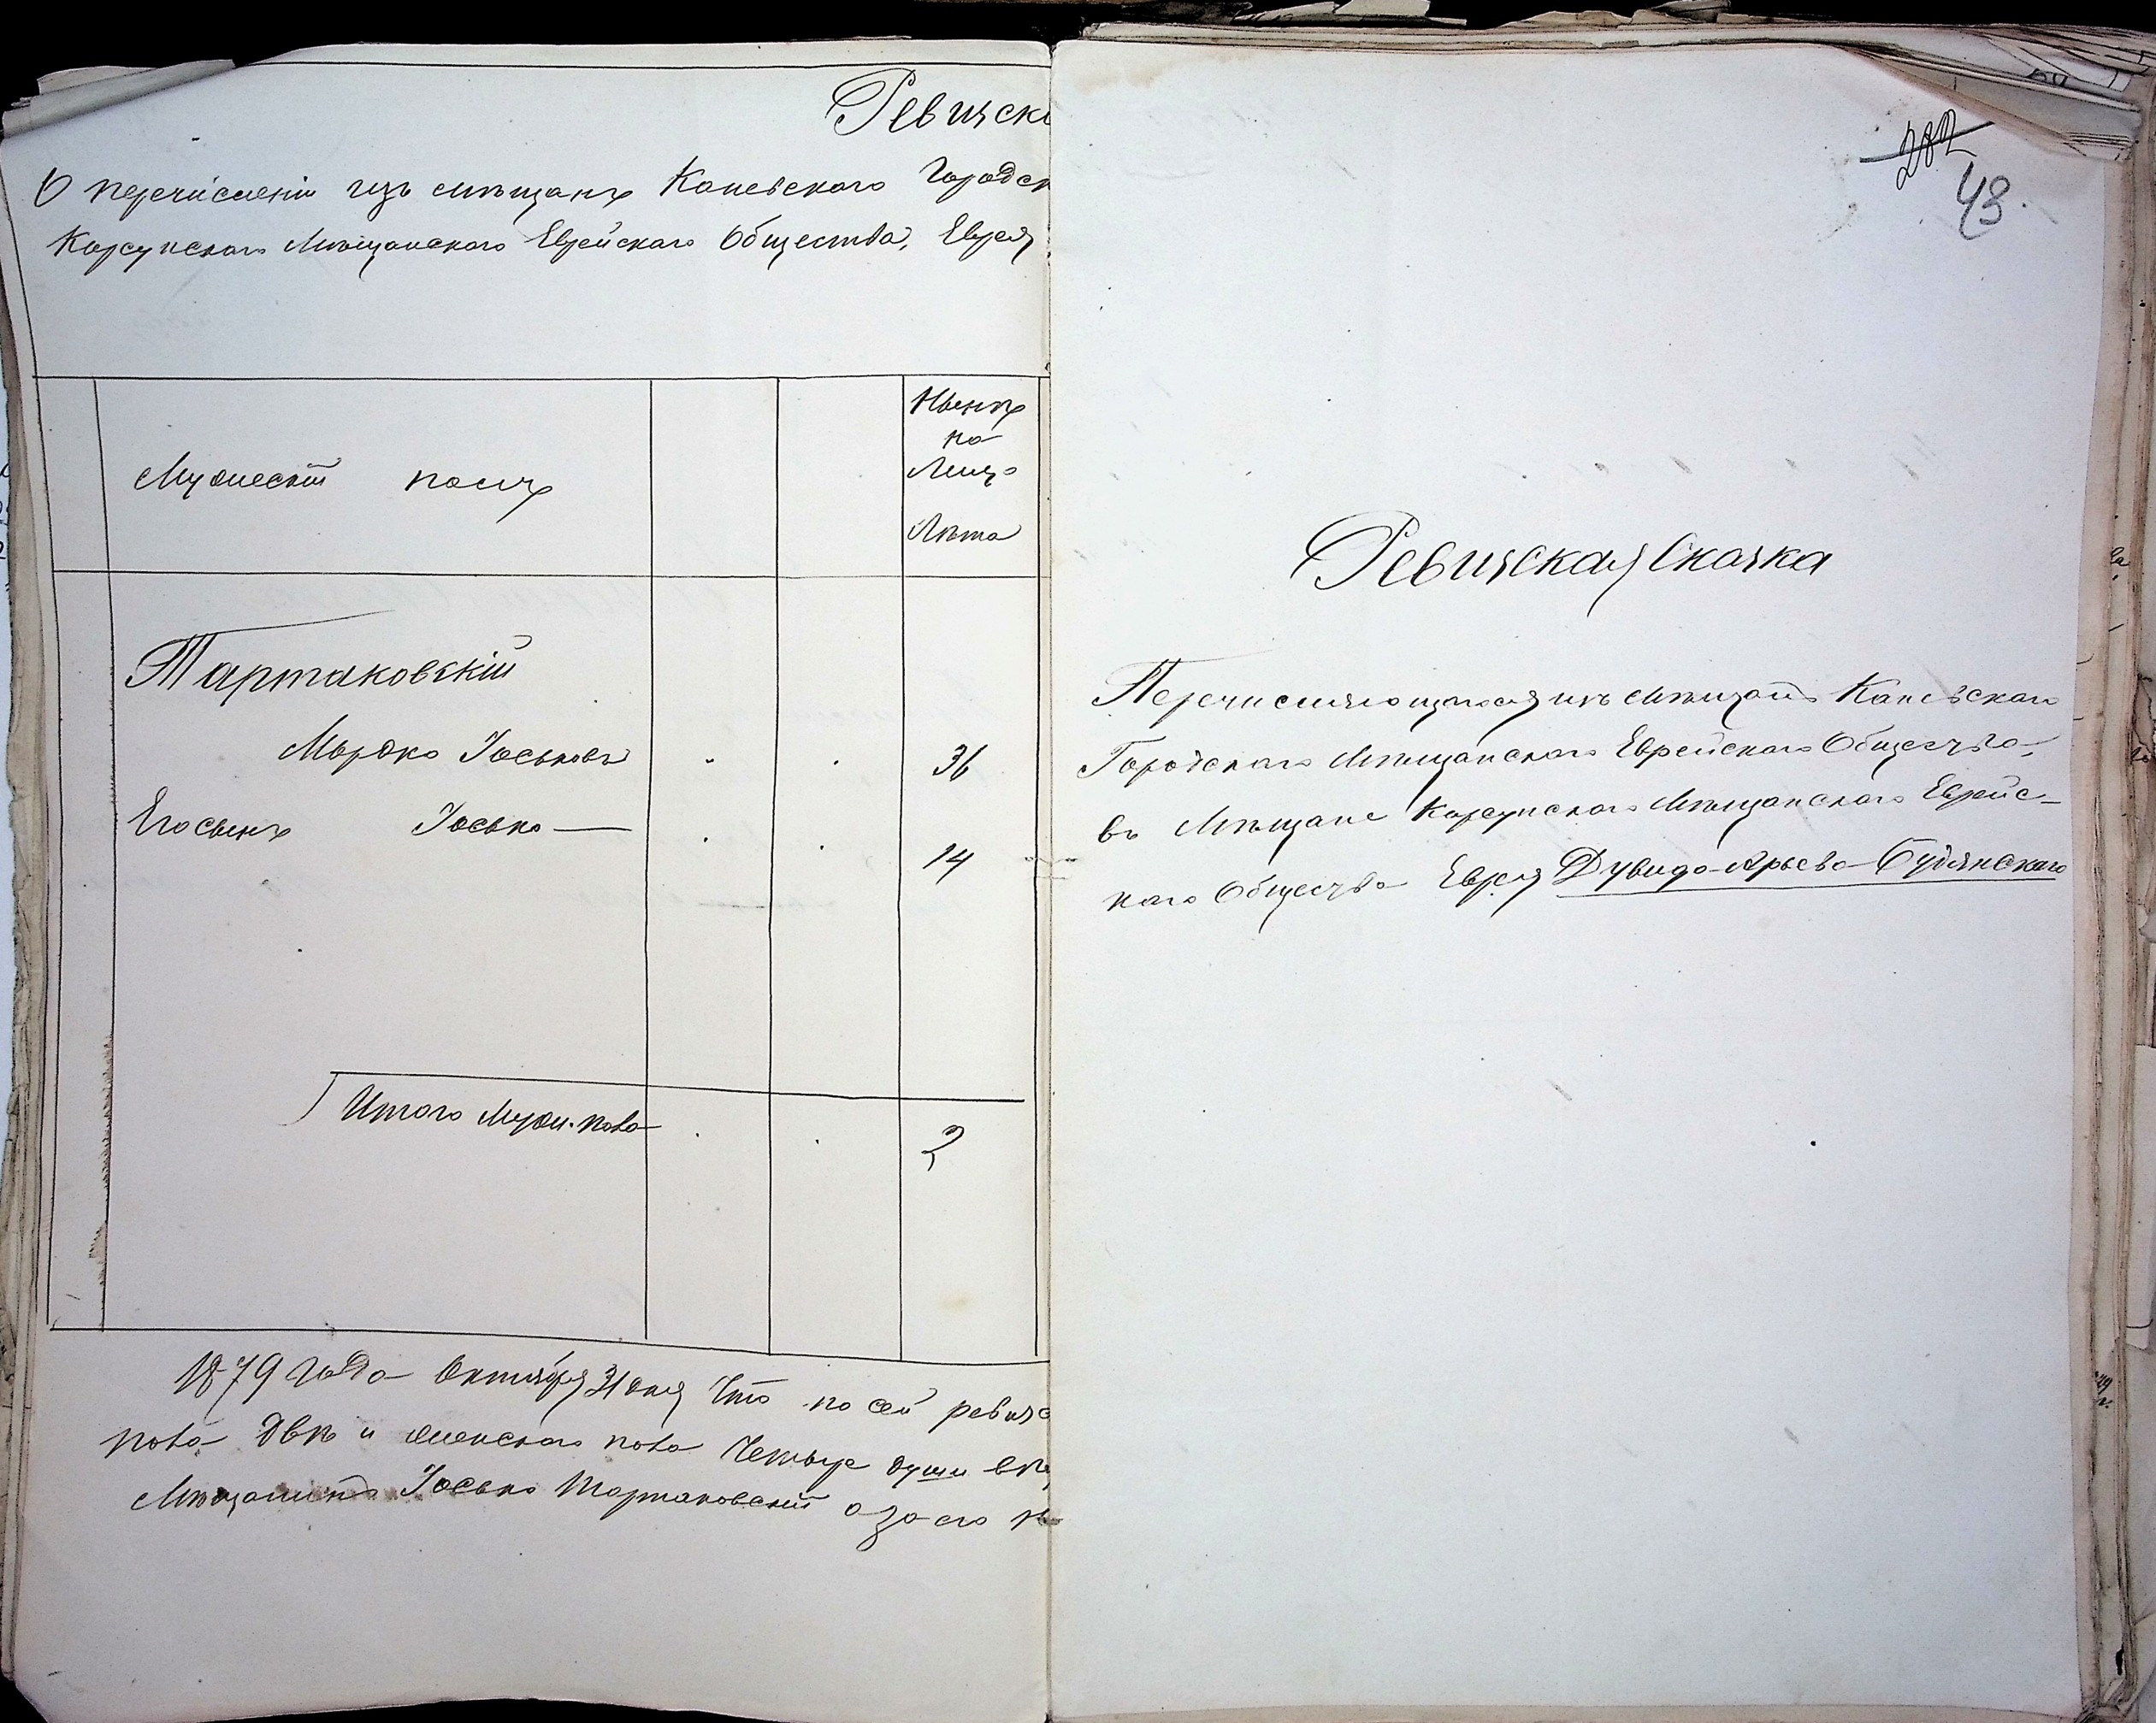 Ревизск
О перечисленіи изъ мѣщанъ Каневскаго Городск
Корсунскаго Мѣщанскаго Еврейскаго Общества, Еврея
Мужескій полъ
Нынѣ
на
Лицо
Лѣта
Тартаковскій
Мордко Іоськовъ
36
Его сынъ Іосько
14
Итого Муж. пола
2
1879 года Октября 31 дня Что по сей ревизс
пола двѣ и женскаго пола Четыре души
Мѣщанинъ Іосько Тартаковскій а за его
282
43.
Ревизская Сказка
Перечисляющагося изъ мѣщанъ Каневскаго
Городскаго Мѣщанскаго Еврейскаго Общества,
въ Мѣщане Корсунскаго Мѣщанскаго Еврейс-
каго Общества Еврея Дувида-Арьева Будянскаго